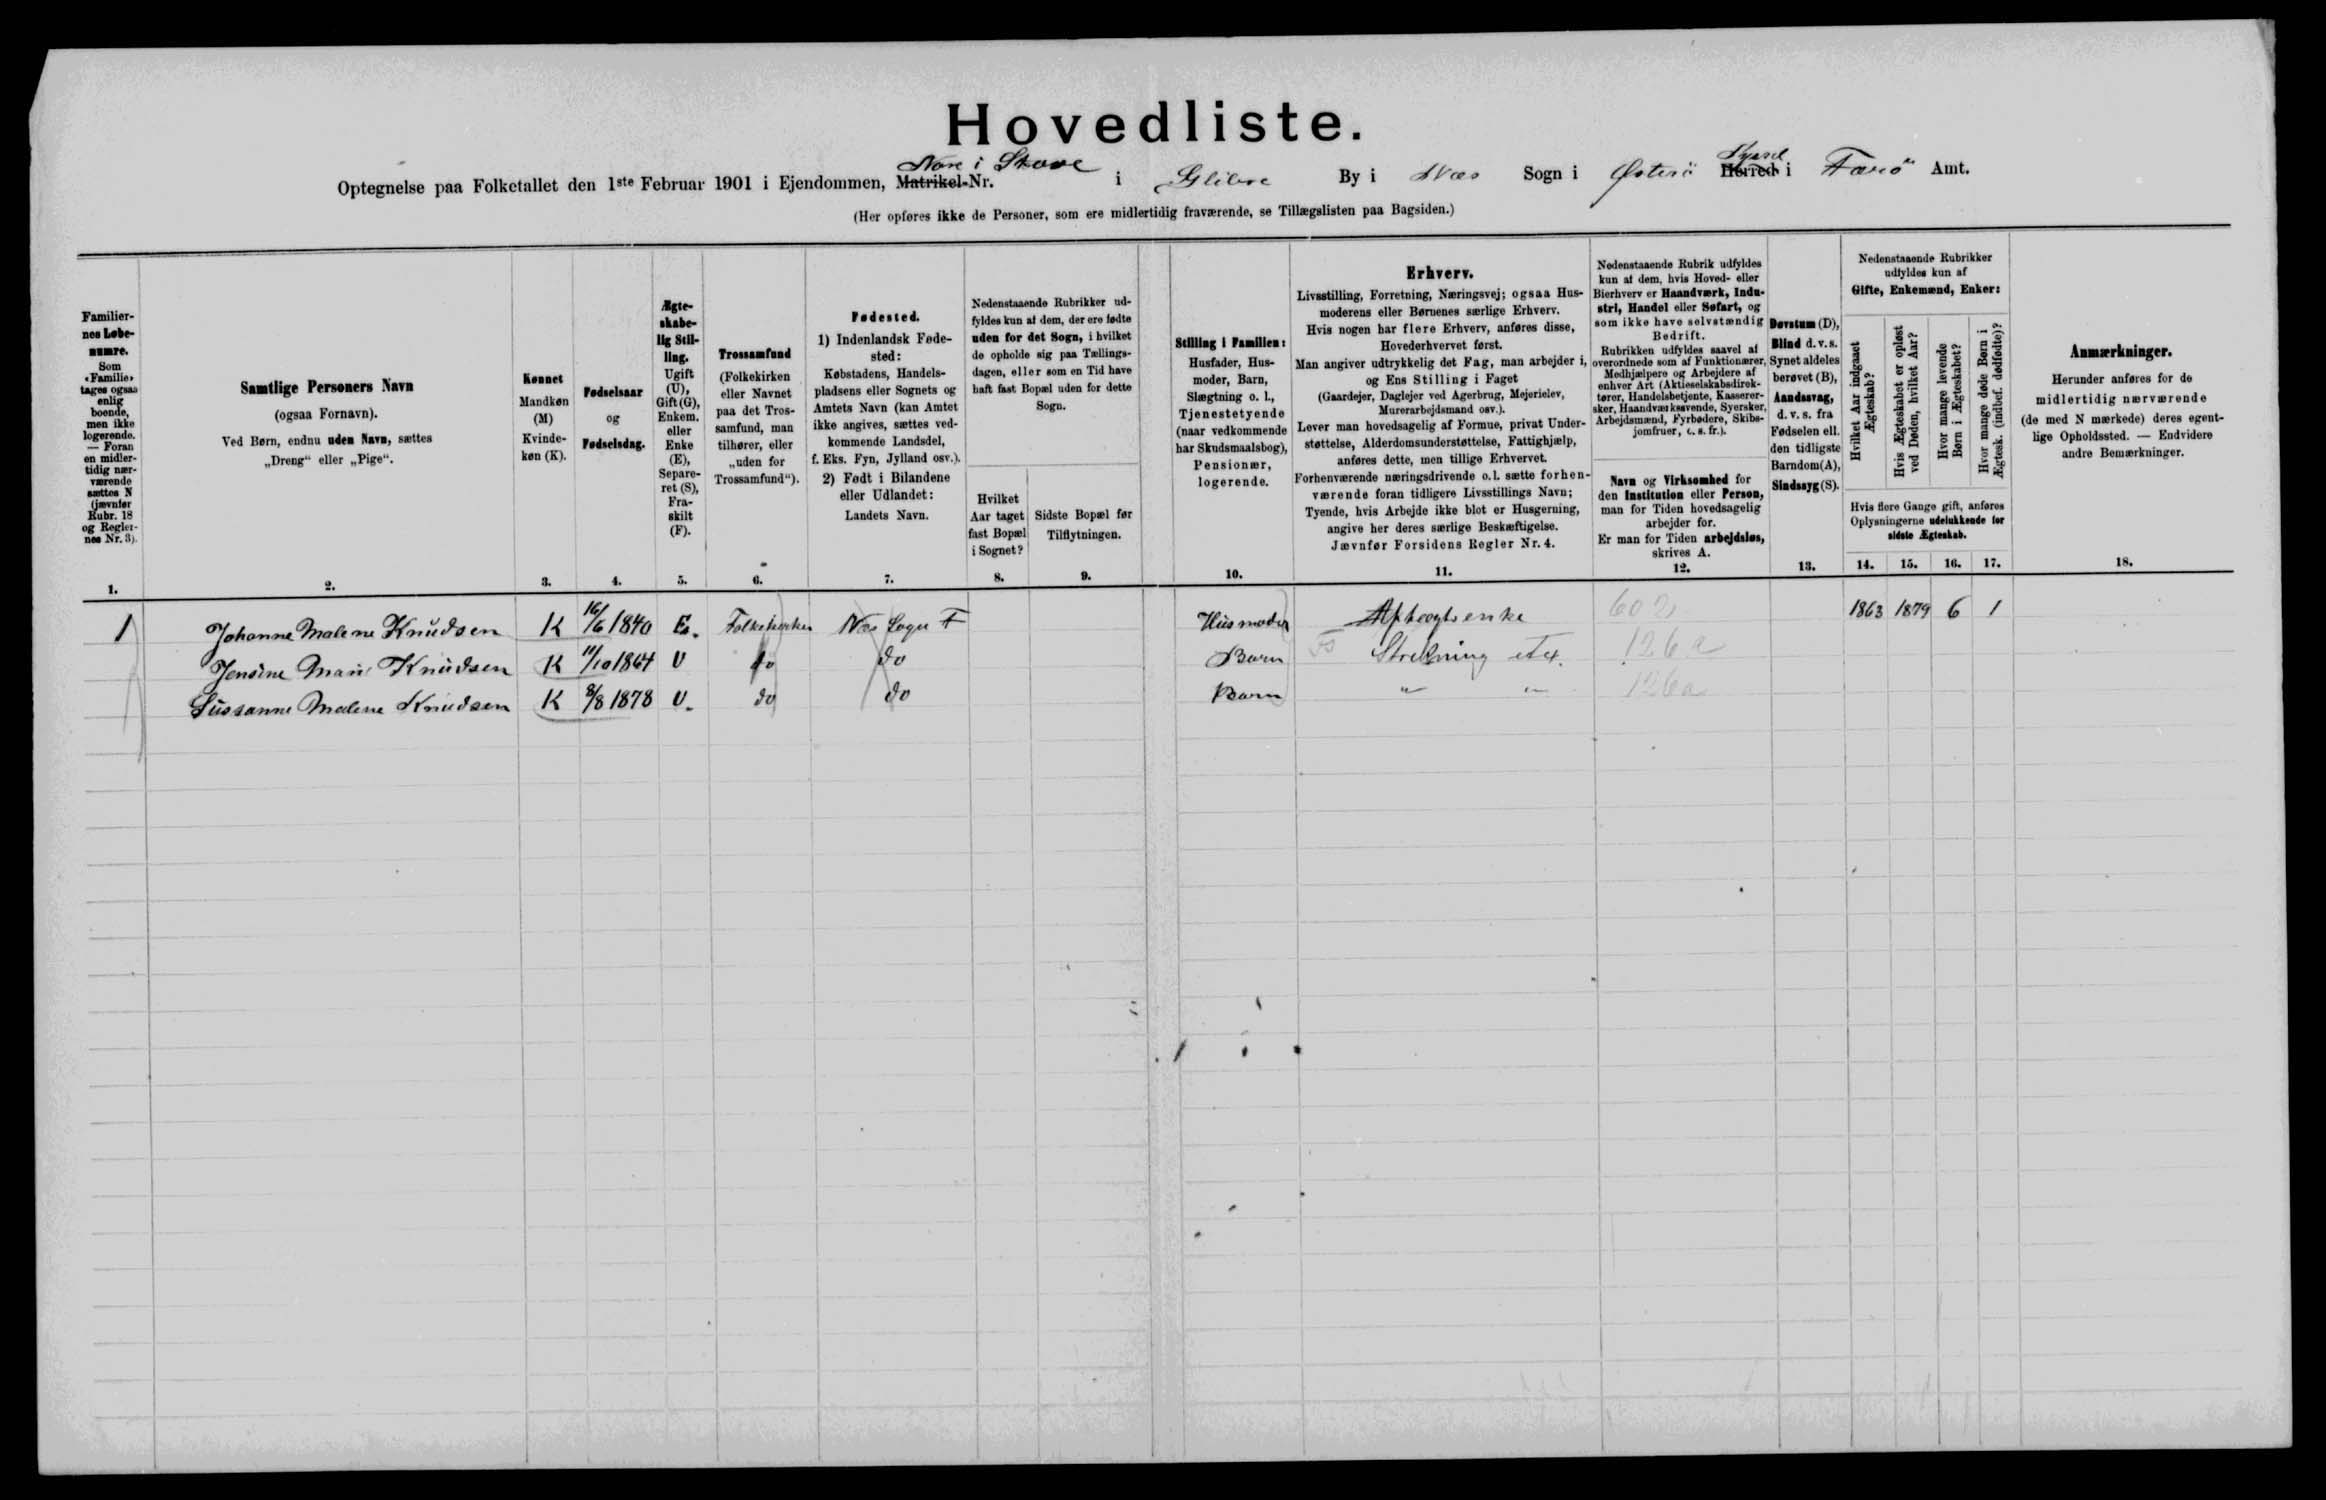 Hovedliste.
Optegnelse paa Folketallet den 1ste Februar 1901 i Ejendommen, Matrikel-Nr. i Glibre By i Næs Sogn i Østerö Syssel Herred i Færö Amt.
(Her opføres ikke de Personer, som ere midlertidig fraværende, se Tillægslisten paa Bagsiden.)
Familier-
nes Løbe-
numre.
Som
«Familie»
tages ogsaa
enlig
boende,
men ikke
logerende.
— Foran
en midler-
tidig nær-
værende
sættes N
(jævnfør
Rubr. 18
og Regler-
nes Nr. 3).
1.
Samtlige Personers Navn
(ogsaa Fornavn).
Ved Børn, endnu uden Navn, sættes
„Dreng“ eller „Pige“.
2.
Kønnet
Mandkøn
(M)
Kvinde-
køn (K).
3.
Fødselsaar
og
Fødselsdag.
4.
Ægte-
skabe-
lig Stil-
ling.
Ugift
(U),
Gift (G),
Enkem.
eller
Enke
(E),
Separe-
ret (S),
Fra-
skilt
(F).
5.
Trossamfund
(Folkekirken
eller Navnet
paa det Tros-
samfund, man
tilhører, eller
„uden for
Trossamfund“).
6.
Fødested.
1) Indenlandsk Føde-
sted:
Købstadens, Handels-
pladsens eller Sognets og
Amtets Navn (kan Amtet
ikke angives, sættes ved-
kommende Landsdel,
f. Eks. Fyn, Jylland osv.).
2) Født i Bilandene
eller Udlandet:
Landets Navn.
7.
Nedenstaaende Rubrikker ud-
fyldes kun af dem, der ere fødte
uden for det Sogn, i hvilket
de opholde sig paa Tællings-
dagen, eller som en Tid have
haft fast Bopæl uden for dette
Sogn.
Hvilket
Aar taget
fast Bopæl
i Sognet?
8.
Sidste Bopæl før
Tilflytningen.
9.
Stilling i Familien:
Husfader, Hus-
moder, Barn,
Slægtning o. l.,
Tjenestetyende
(naar vedkommende
har Skudsmaalsbog),
Pensionær,
logerende.
10.
Erhverv.
Livsstilling, Forretning, Næringsvej; ogsaa Hus-
moderens eller Børnenes særlige Erhverv.
Hvis nogen har flere Erhverv, anføres disse,
Hovederhvervet først.
Man angiver udtrykkelig det Fag, man arbejder i,
og Ens Stilling i Faget
(Gaardejer, Daglejer ved Agerbrug, Mejerielev,
Murerarbejdsmand osv.).
Lever man hovedsagelig af Formue, privat Under-
støttelse, Alderdomsunderstøttelse, Fattighjælp,
anføres dette, men tillige Erhvervet.
Forhenværende næringsdrivende o. l. sætte forhen-
værende foran tidligere Livsstillings Navn;
Tyende, hvis Arbejde ikke blot er Husgerning,
angive her deres særlige Beskæftigelse.
Jævnfør Forsidens Regler Nr. 4.
11.
Nedenstaaende Rubrik udfyldes
kun af dem, hvis Hoved- eller
Bierhverv er Haandværk, Indu-
stri, Handel eller Søfart, og
som ikke have selvstændig
Bedrift.
Rubrikken udfyldes saavel af
overordnede som af Funktionærer,
Medhjælpere og Arbejdere af
enhver Art (Aktieselskabsdirek-
tører, Handelsbetjente, Kasserer-
sker, Haandværkssvende, Syersker,
Arbejdsmænd, Fyrbødere, Skibs-
jomfruer, o. s. fr.).
Navn og Virksomhed for
den Institution eller Person,
man for Tiden hovedsagelig
arbejder for.
Er man for Tiden arbejdsløs,
skrives A.
12.
Døvstum (D),
Blind d. v. s.
Synet aldeles
berøvet (B),
Aandssvag,
d. v. s. fra
Fødselen ell.
den tidligste
Barndom (A),
Sindssyg (S).
13.
Nedenstaaende Rubrikker
udfyldes kun af
Gifte, Enkemænd, Enker:
Hvilket Aar indgaaet
Ægteskab?
Hvis Ægteskabet er opløst
ved Døden, hvilket Aar?
Hvor mange levende
Børn i Ægteskabet?
Hvor mange døde Børn i
Ægtesk. (indbef. dødfødte)?
Hvis flere Gange gift, anføres
Oplysningerne udelukkende for
sidste Ægteskab.
14. 15. 16. 17.
Anmærkninger.
Herunder anføres for de
midlertidig nærværende
(de med N mærkede) deres egent-
lige Opholdssted. — Endvidere
andre Bemærkninger.
18.
1 Johanne Malene Knudsen K 16/6 1840 E. Folkekirken Næs Sogn F Husmoder Aftægtsenke 602 1863 1879 6 1
Jensine Marie Knudsen K 11/10 1864 U do do Barn Strikning 126a
Sussanne Malene Knudsen K 8/8 1878 U. do do Barn " " 126a